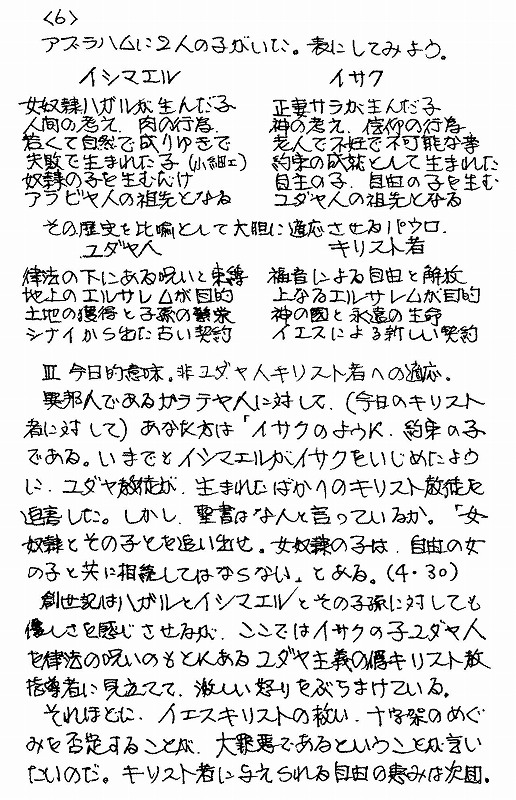 〈6〉
アブラハムに2人の子がいた。表にしてみよう。
イシマエル　イサク
女奴隷ハガルが生んだ子　正妻サラが生んだ子
人間の考え、肉の行為　神の考え、信仰の行為
若くて自然で成りゆきで　老人で不妊で不可能な事
失敗で生まれた子(小細工)　約束の成就として生まれた
奴隷の子を生むだけ　自主の子、自由の子を生む
アラビヤ人の祖先となる　ユダヤ人の祖先となる
その歴史を比喩として大胆に適応させるパウロ。
ユダヤ人　キリスト者
律法の下にある呪いと束縛　福音による自由と解放
地上のエルサレムが目的　上なるエルサレムが目的
土地の獲得と子孫の繁栄　神の国と永遠の生命
シナイから出た古い契約　イエスによる新しい契約
Ⅲ 今日的意味。非ユダヤ人キリスト者への適応。
異邦人であるガラテヤ人に対して、(今日のキリスト
者に対して)あなた方は「イサクのように、約束の子
である。いまでもイシマエルがイサクをいじめたよう
に、ユダヤ教徒が、生まれたばかりのキリスト教徒を
迫害した。しかし、聖書はなんと言っているか。「女
奴隷とその子とを追い出せ。女奴隷の子は、自由の女
の子と共に相続してはならない」とある。(4・30)
創世記はハガルとイシマエルとその子孫に対しても
優しさを感じさせるが、ここではイサクの子ユダヤ人
を律法の呪いのもとにあるユダヤ主義の偽キリスト教
指導者に見立てて、激しい怒りをぶちまけている。
それほどに、イエスキリストの救い、十字架のめぐ
みを否定することが、大罪悪であるということが言い
たいのだ。キリスト者に与えられる自由の恵みは次回。